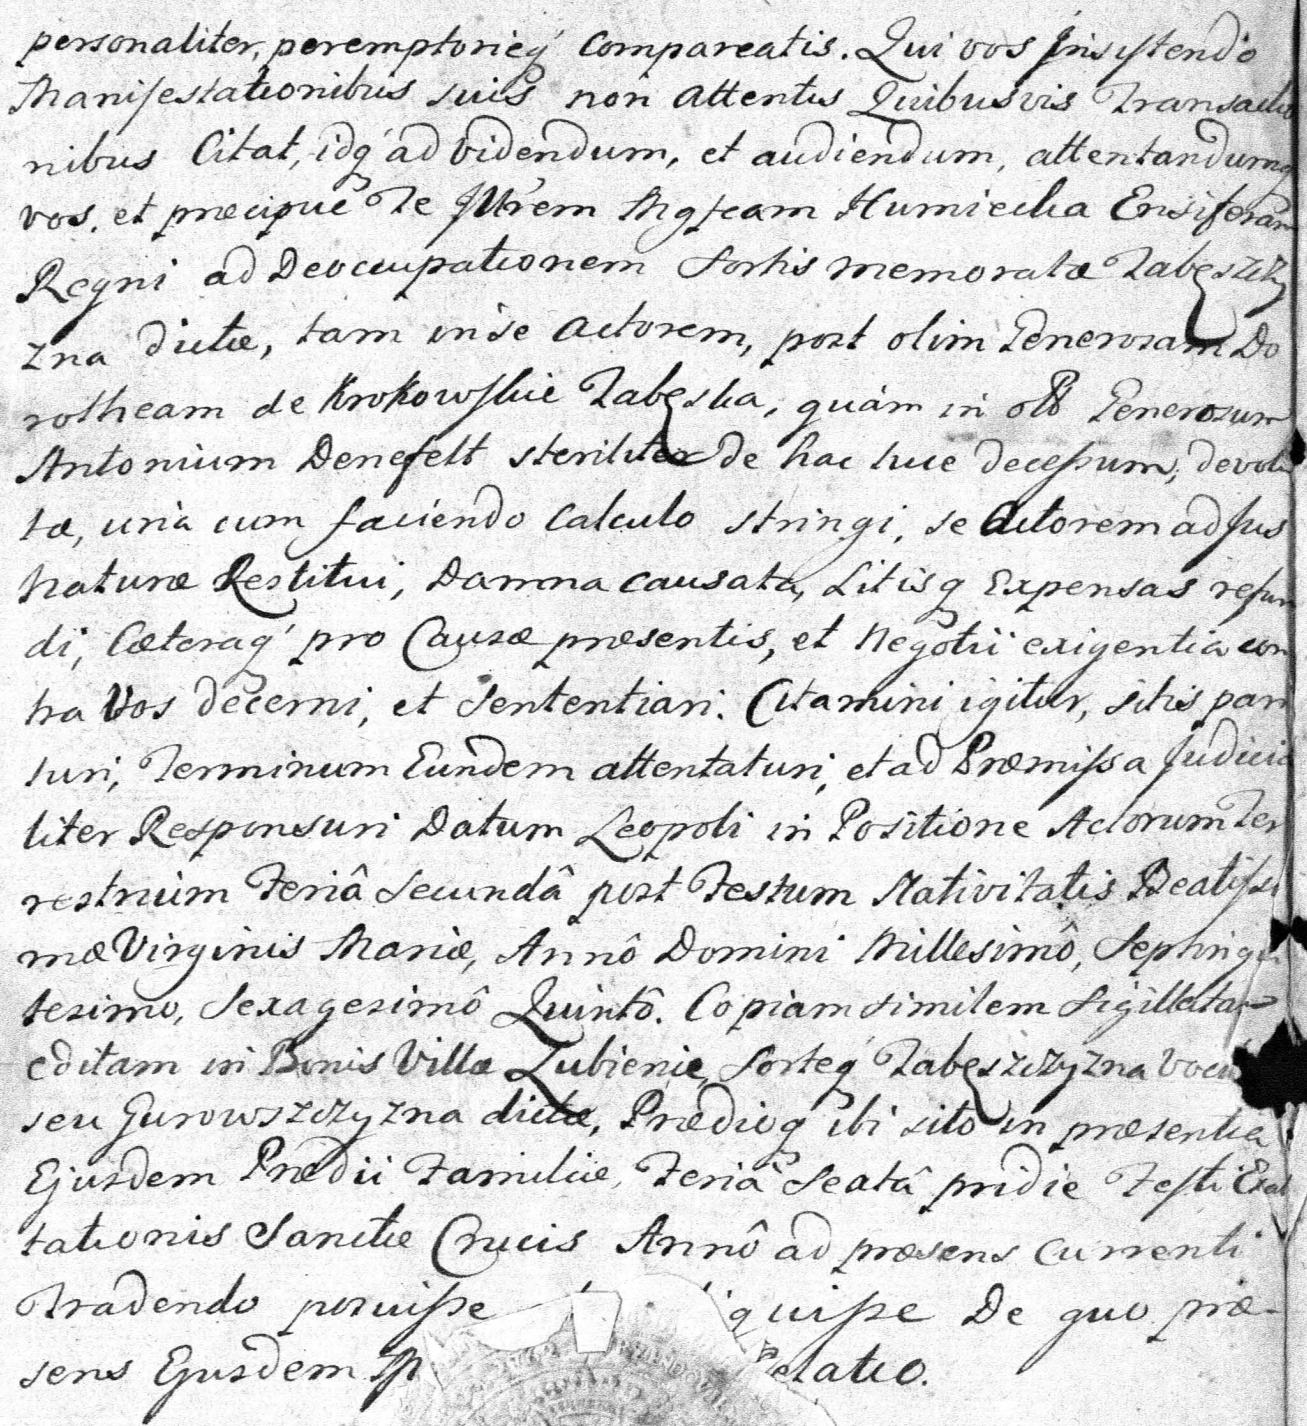 personaliter, peremptorieq' compareatis. Qui vos Insistendo
Manifestationibus suis non attentis Quibusvis Transactio
nibus Citat, idq' ad Videndum, et audiendum, attentandumq
vos, et præcipuè Te Illrem Mgfcam Humiecka Ensiferam
Regni ad Deoccupationem Sortis memoratæ Łabęszczy
zna dictæ, tam in se Actorem, post olim Generosam Do
rotheam de Krokowskie Łabęska, quàm in olim Generosum
Antonium Denefelt steriliter de hac luce decessum, devolu
tæ, unà cum faciendo Calculo stringi, se Actorem ad Jus
naturæ Restitui, Damna causata, Litisq Expensas refun
di, Cæteraq' pro Causæ præsentis, et Negotii exigentia con
tra Vos decerni, et Sententiari. Citamini igitur, sitis pari
turi, Terminum Eundem attentaturi, et ad Præmissa Judicia
liter Responsuri Datum Leopoli in Positione Actorum Ter
restrium Feriâ Secundâ post Festum Nativitatis Beatissi
mæ Virginis Mariæ, Annô Domini Millesimô, Septingen
tesimo, Sexagesimô Quintô. Copiam similem Sigillatam
editam in Bonis Villæ Łubienie, Sorteq' Łabęszczyzna
seu Gurowszczyzna dictæ, Prædioq ibi sito in præsentia
Ejusdem Prædii Familiæ, Feriâ Sextâ pridie Festi Exal
tationis Sanctæ Crucis Annô ad præsens currenti
Tradendo posuisse quisse De quo præ-
sens Ejusdem elatio.